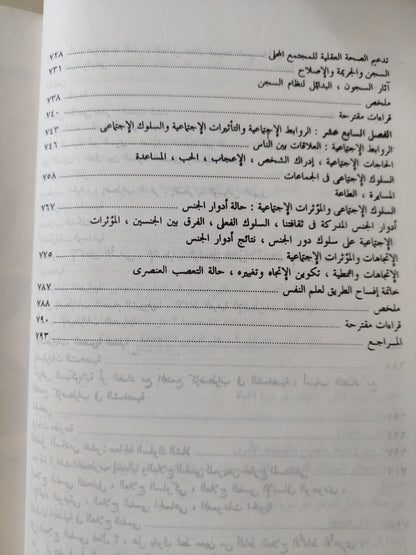 تدعيم الصحة العقلية للمجتمع المحلى ٧٢٨
السجن والجريمة والإصلاح ٧٣١
آثار السجون ، البدائل لنظام السجن
ملخص ٧٣٨
قراءات مقترحة ٧٤٠
الفصل السابع عشر : الروابط الإجتماعية والتأثيرات الإجتماعية والسلوك الإجتماعى ٧٤٣
الروابط الإجتماعية : العلاقات بين الناس ٧٤٦
الحاجات الإجتماعية ، إدراك الشخص ، الإعجاب ، الحب ، المساعدة
السلوك الإجتماعى فى الجماعات ٧٥٨
المسايرة ، الطاعة
السلوك الإجتماعى والمؤثرات الإجتماعية : حالة أدوار الجنس ٧٦٧
أدوار الجنس المدركة فى ثقافتنا ، السلوك الفعلى ، الفرق بين الجنسين ، المؤثرات
الإجتماعية على سلوك دور الجنس ، نتائج أدوار الجنس
الإتجاهات والمؤثرات الإجتماعية ٧٧٥
الإتجاهات والنمطية ، تكوين الإتجاه وتغييره ، حالة التعصب العنصرى
خاتمة إفساح الطريق لعلم النفس ٧٨٧
ملخص ٧٨٨
قراءات مقترحة ٧٩٠
المراجع ٧٩٣